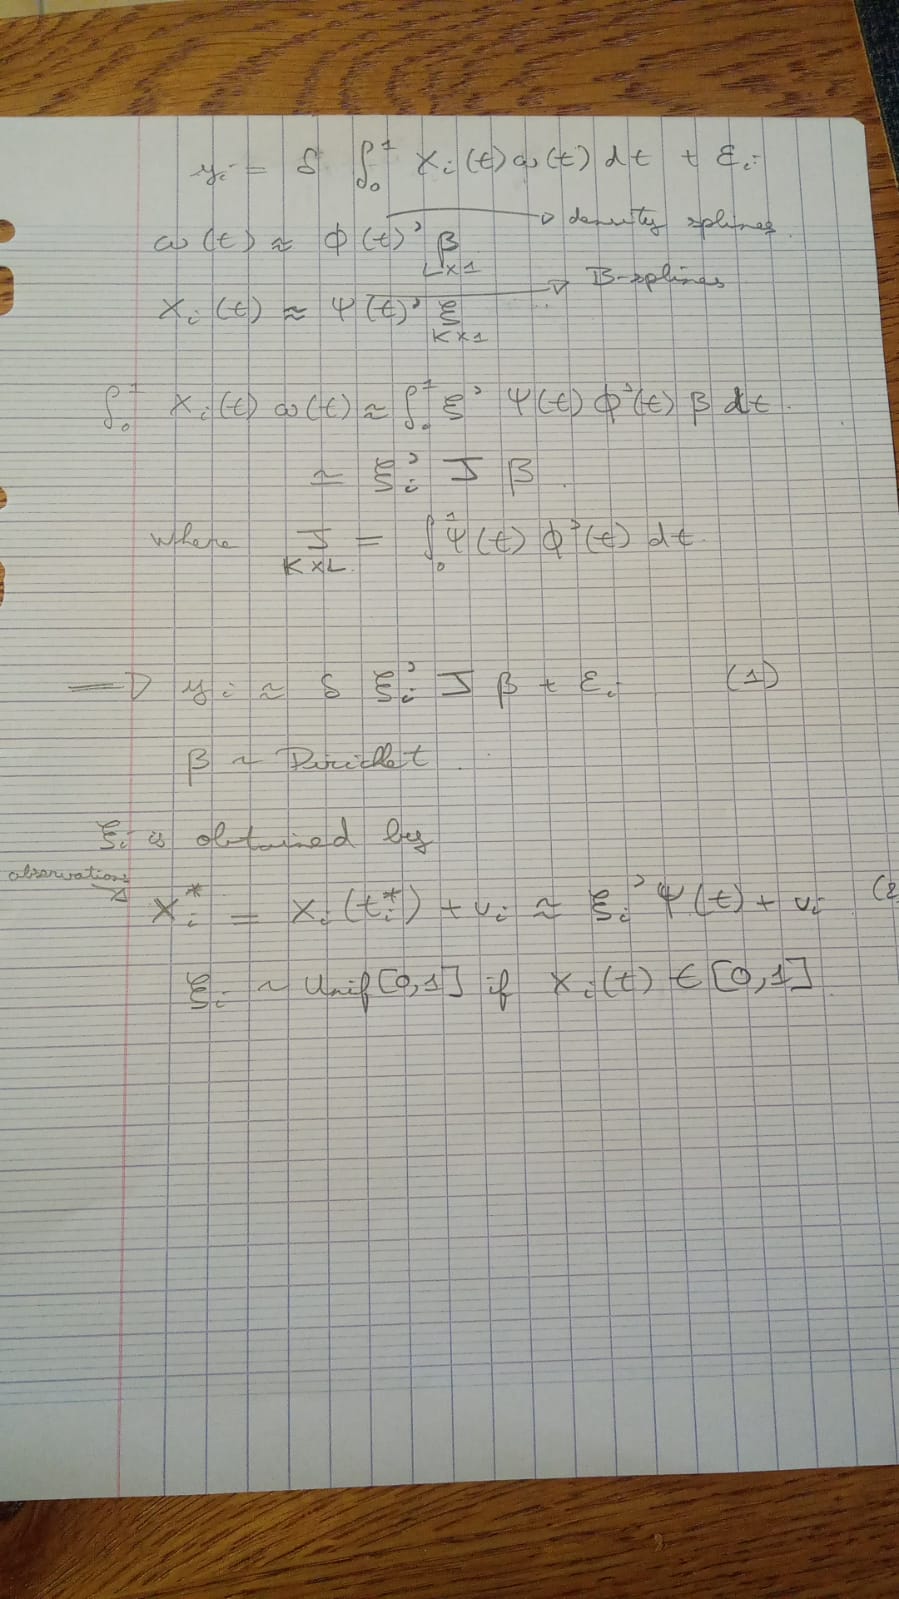 yᵢ = δ ∫₀¹ Xᵢ(t) ω(t) dt + εᵢ
ω(t) ≈ φ(t)' β → density splines
L×1
Xᵢ(t) ≈ Ψ(t)' ξ → B-splines
K×1
∫₀¹ Xᵢ(t) ω(t) ≈ ∫₀¹ ξ' Ψ(t) φ'(t) β dt
≃ ξᵢ' J β
where J = ∫₀¹ Ψ(t) φ'(t) dt
K×L
⟹ yᵢ ≈ δ ξᵢ' J β + εᵢ (1)
β ~ Dirichlet
ξᵢ is obtained by
observations
Xᵢ* = Xᵢ(tᵢ*) + vᵢ ≈ ξᵢ' Ψ(t) + vᵢ (2
ξᵢ ~ Unif[0,1] if Xᵢ(t) ∈ [0,1]